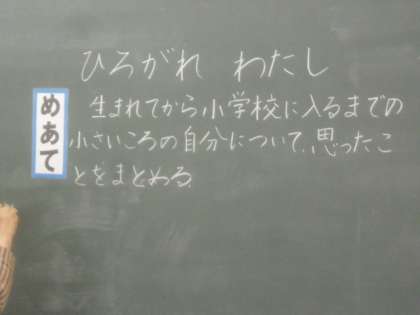 ひろがれ わたし
めあて
生まれてから小学校に入るまでの
小さいころの自分について、思ったこ
とをまとめる。